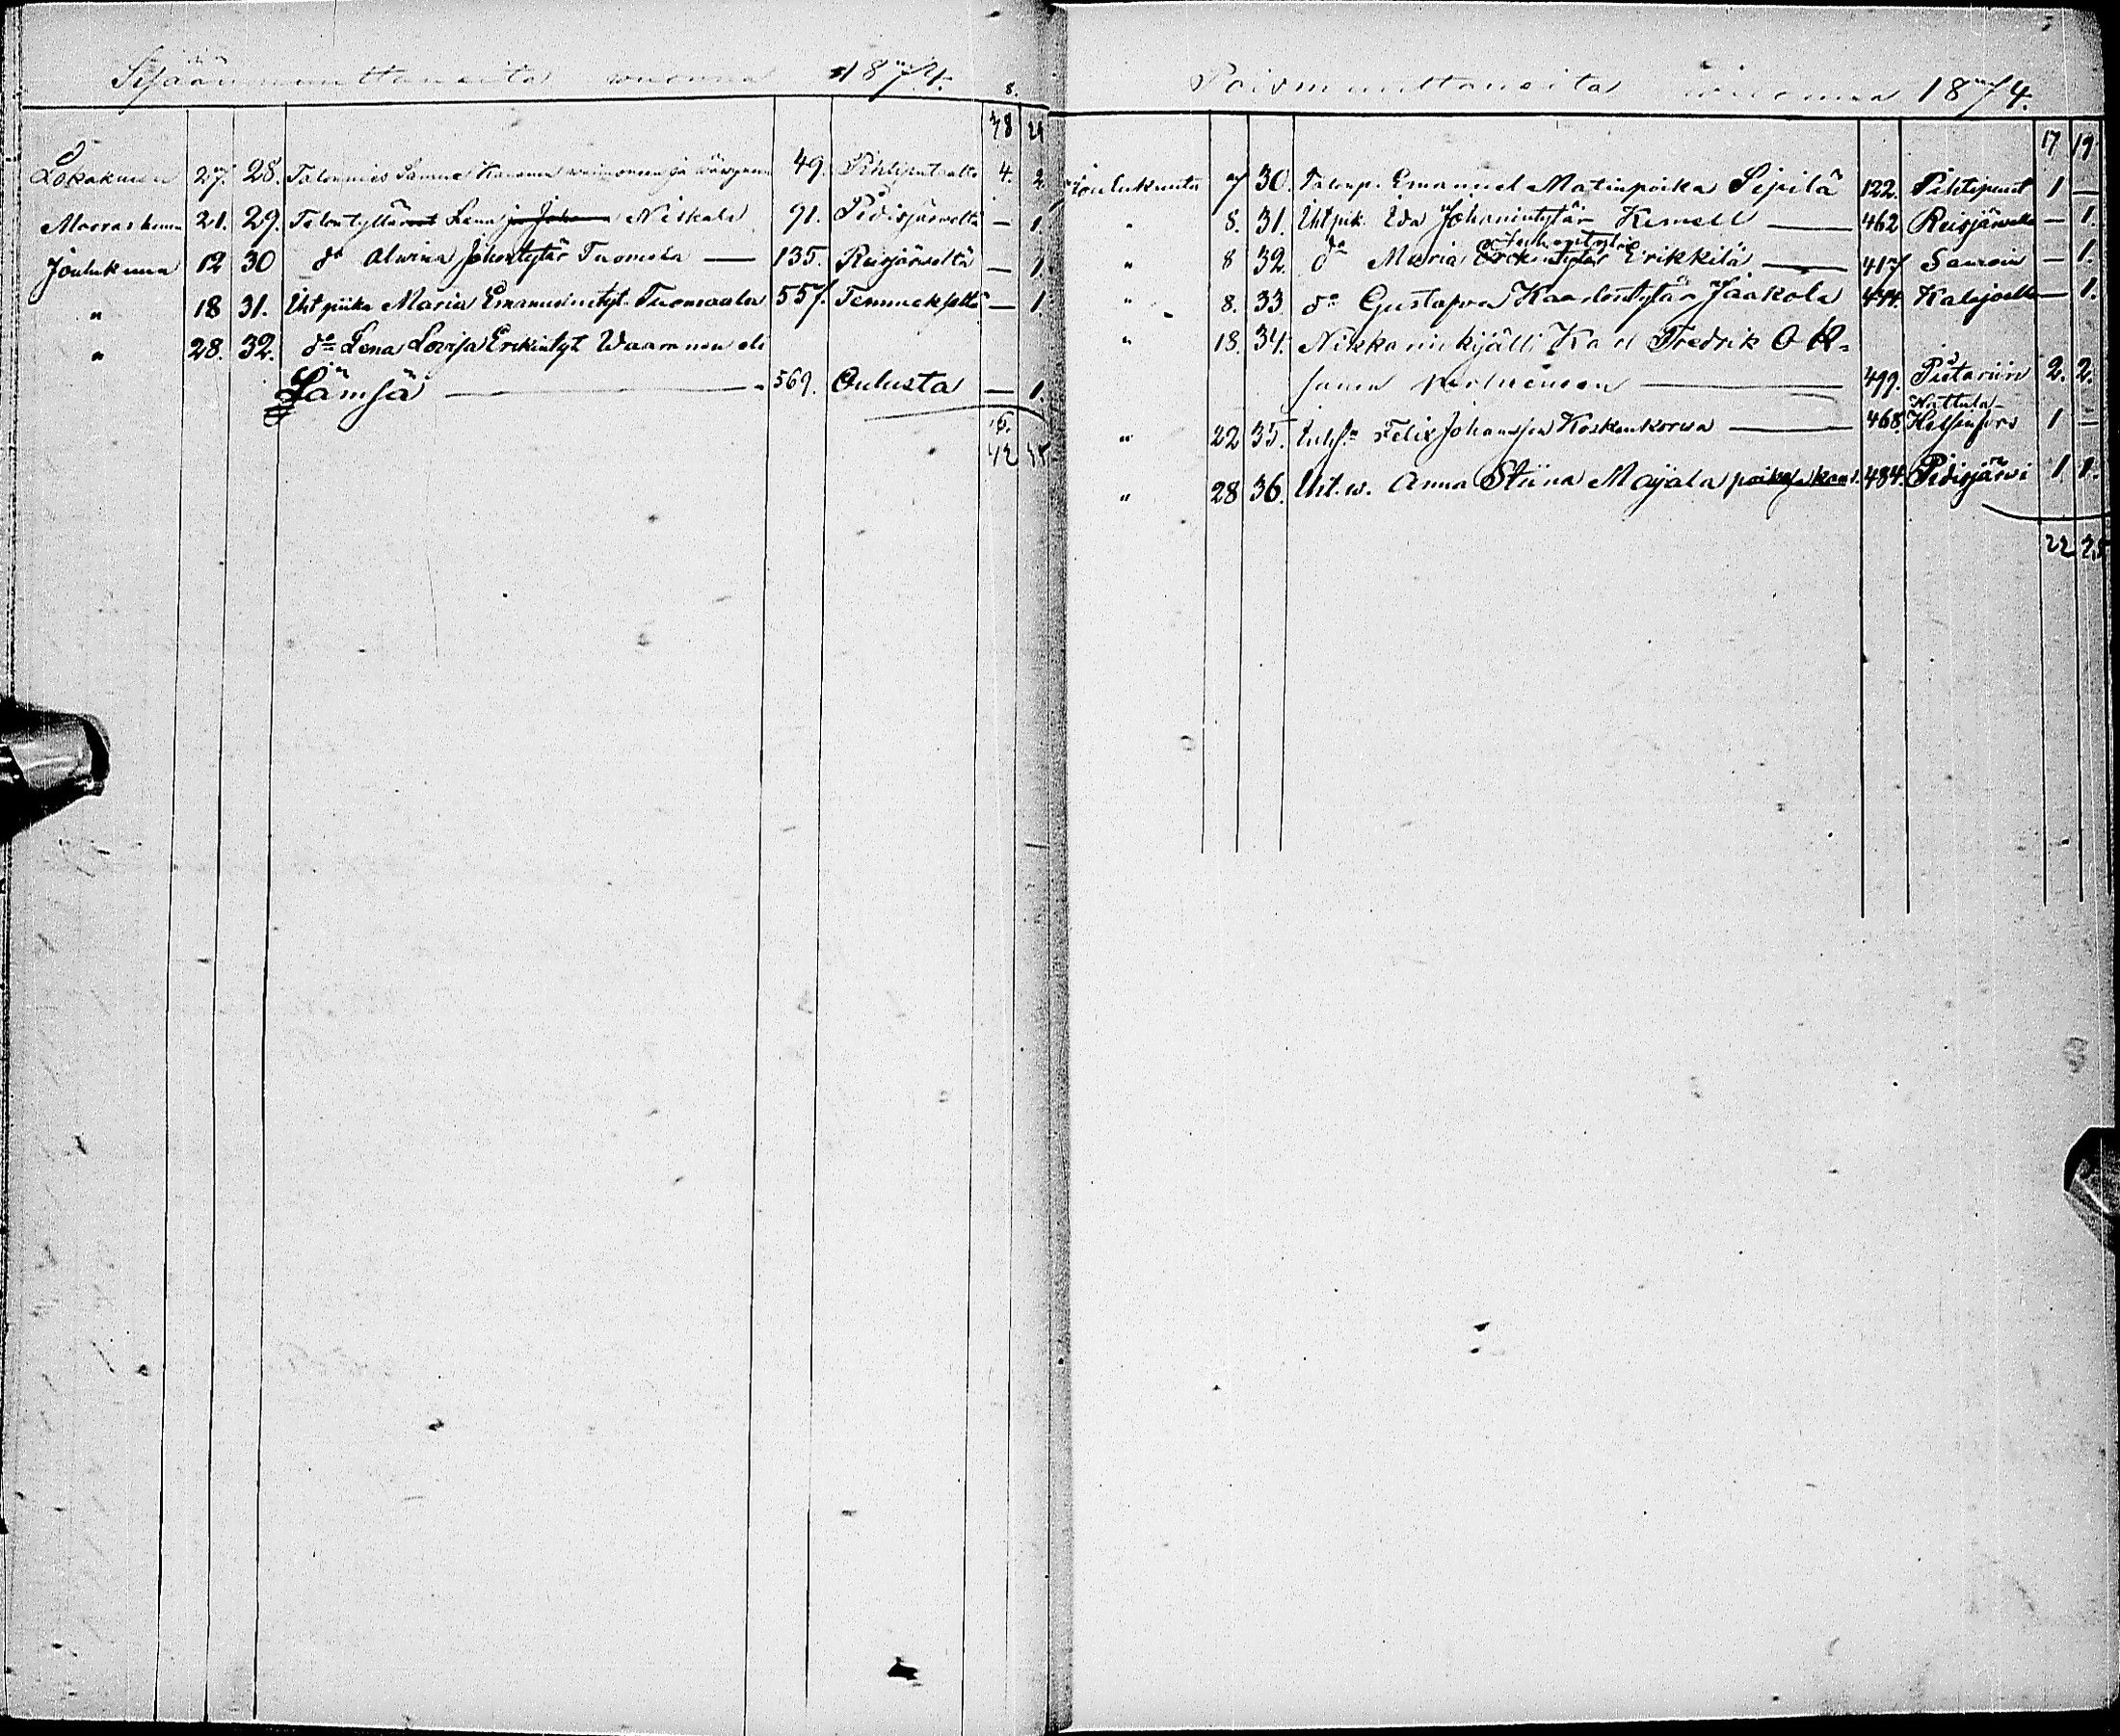 Sisäänmuuttaneita vuonna 1874.
8.
38 29
Lokakuun 27. 28. Talonmies 49. Pihtiputaalta 4. 2.
Marraskuun 21. 29. Talontyttäret Lena ja Joha Niskala 91. Pidisjärveltä — 1.
Joulukuun 12 30 do Alwina Johantytär Tuomela — 135. Reisjärveltä — 1.
" 18 31. Iht piika Maria Emanuelintyt. Tuomaala 557. Temmekseltä — 1.
" 28. 32. do Lena Lovisa Erikintyt Waaranen eli
Lämsä — 569. Oulusta — 1.
42 35
Poismuuttaneita vuonna 1874.
17 19
Joulukuuta 7 30. Talonp. Emanuel Matinpoika Sipilä 122. Pihtiput 1 —
" 8. 31. Iht piik. Eda Johanintytär Kemell — 462 Reisjärvelle — 1.
Juhontytär
" 8 32. do Maria Erkintytär Erikkilä — 417 — 1.
" 8. 33 do Gustafva Kaarlontytär Jaakola 474. Kalajoelle — 1.
" 18. 34. Nikkarinkisälli Karl Fredrik O K-
499. Pietariin 2. 2.
" 22 35. Felix Johansson Koskenkorva — 468. Helsinfors 1 —
" 28 36. Iht. w. Anna Stiina Majala poikasa kans. 484. Pidisjärvi 1. 1.
22 25